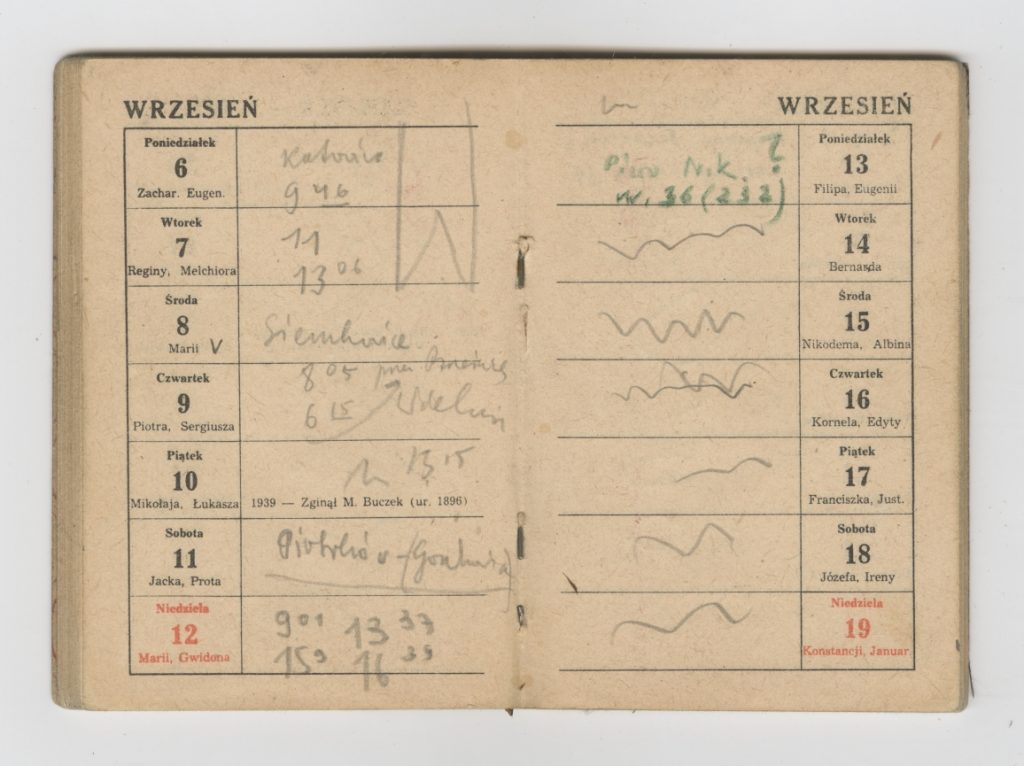 WRZESIEŃ
Poniedziałek
6
Zachar. Eugen.
Katowice
9 46
Wtorek
7
Reginy, Melchiora
11
13 06
Środa
8
Marii V
Siemkowice
Czwartek
9
Piotra, Sergiusza
8 05
6 15
Piątek
10
Mikołaja, Łukasza
13 15
1939 — Zginął M. Buczek (ur. 1896)
Sobota
11
Jacka, Prota
Piotrków
Niedziela
12
Marii, Gwidona
9 01 13 37
15 9 16 39
WRZESIEŃ
Poniedziałek
13
Filipa, Eugenii
Nik. ?
w. 36 (232)
Wtorek
14
Bernarda
Środa
15
Nikodema, Albina
Czwartek
16
Kornela, Edyty
Piątek
17
Franciszka, Just.
Sobota
18
Józefa, Ireny
Niedziela
19
Konstancji, Januar.